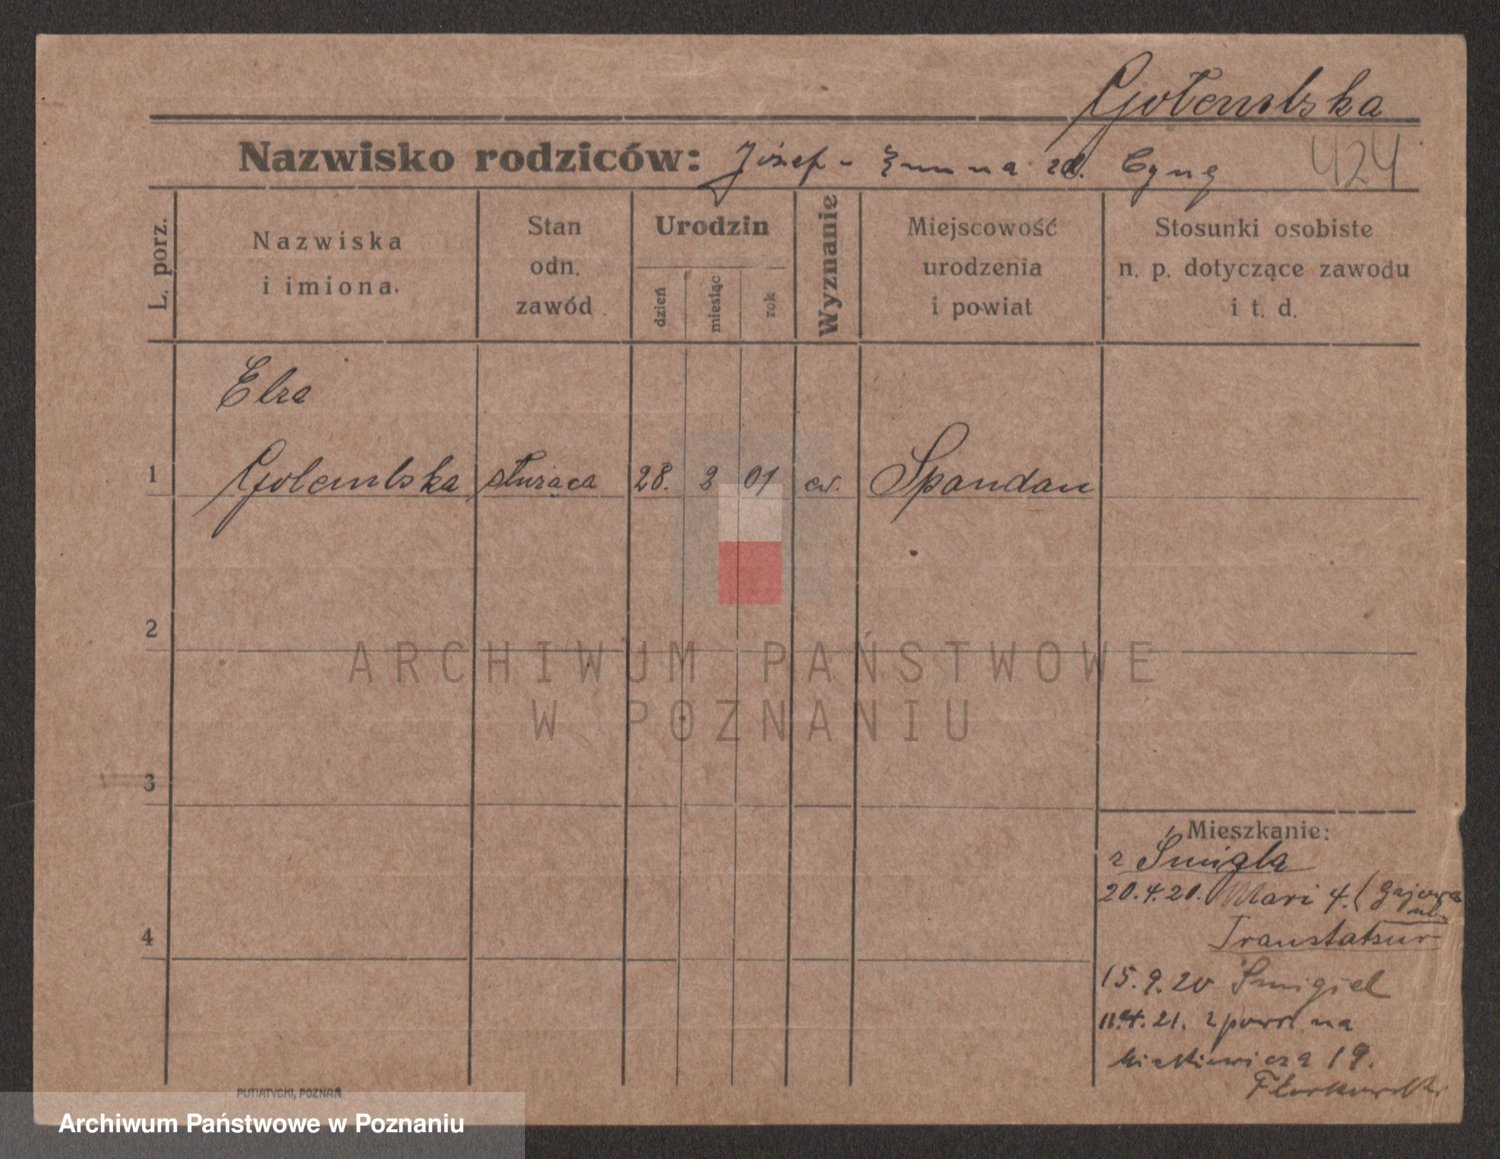 Gołembska
Nazwisko rodziców: Józef - Emma zd. Cyng
424
L. porz.
Nazwiska
i imiona.
Stan
odn.
zawód
Urodzin
dzień
miesiąc
rok
Wyznanie
Miejscowość
urodzenia
i powiat
Stosunki osobiste
n. p. dotyczące zawodu
i t. d.
Elza
1 Golembska służąca 28. 2 01 ew. Spandau
2
ARCHIWUM PAŃSTWOWE
W POZNANIU
3
Mieszkanie:
z Śmigla
20.4.20. Mari 4. (Gajowa
ul.
4
15.9.20 Śmigiel
11.4.21. zpowr. na
Mickiewicza 19.
PUTIATYCKI, POZNAŃ
Archiwum Państwowe w Poznaniu